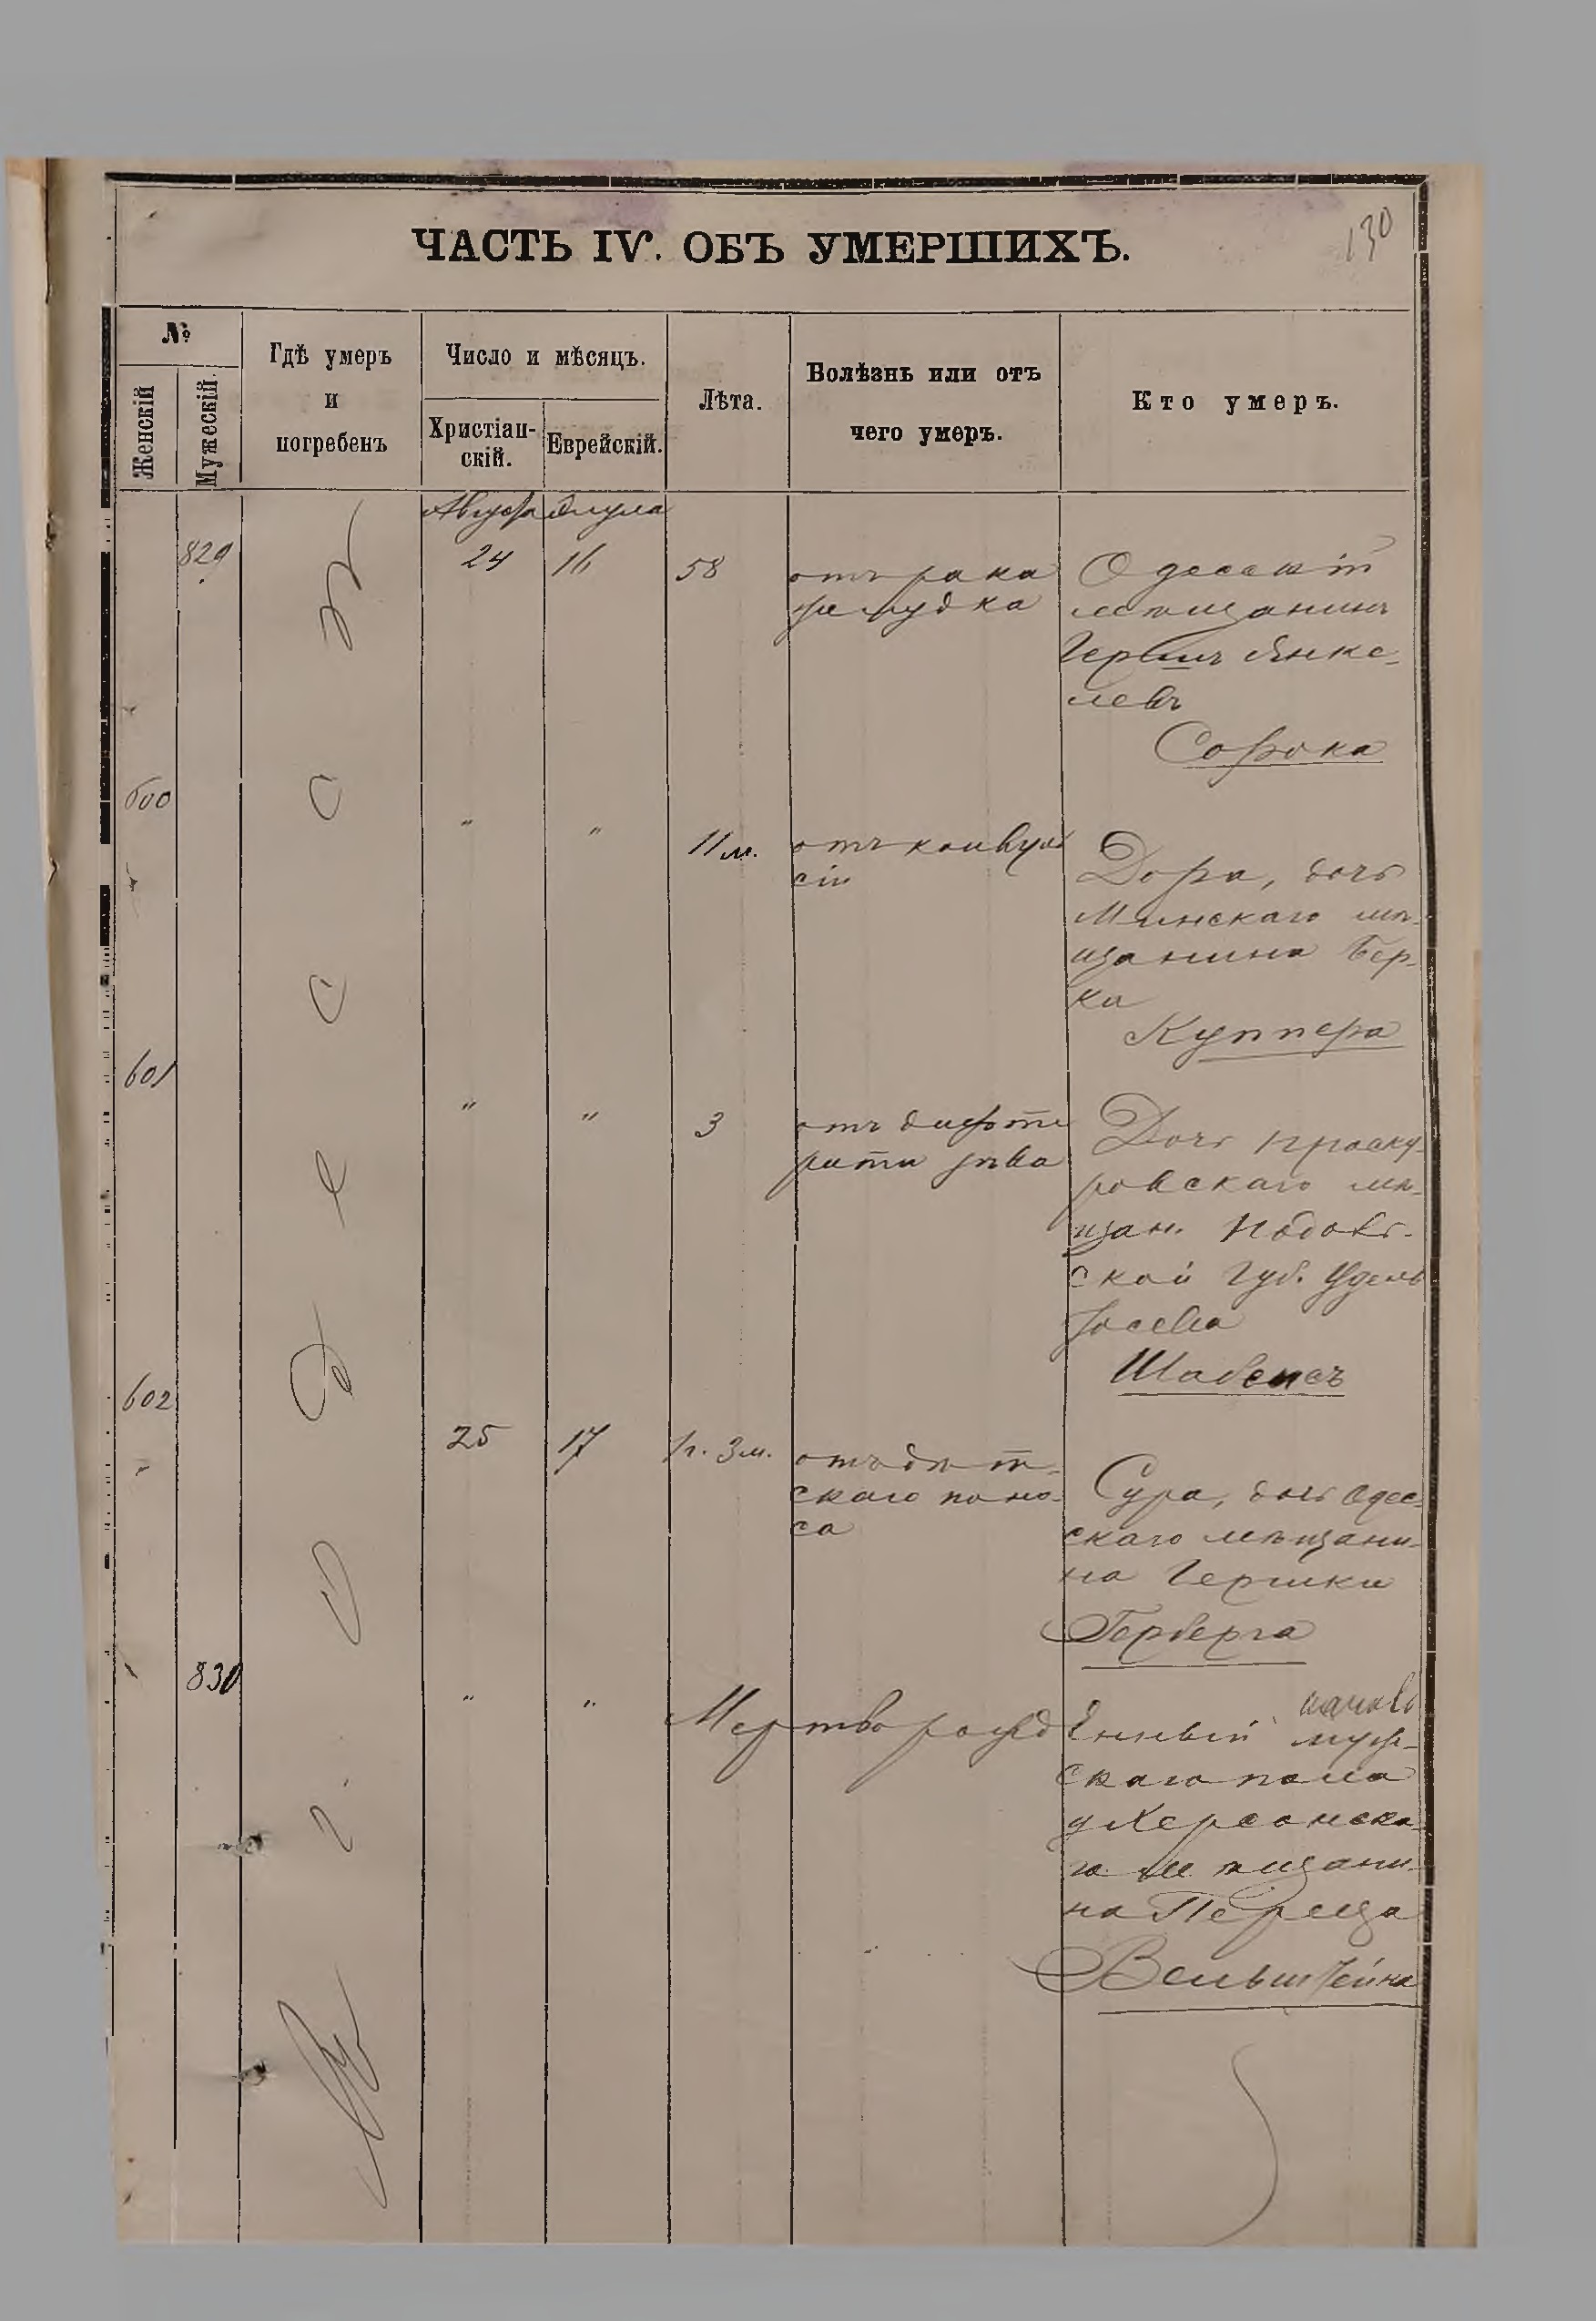 130
ЧАСТЬ IV. ОБЪ УМЕРШИХЪ.
№
Женскій
Мужескій.
Гдѣ умеръ
и
погребенъ
Число и мѣсяцъ.
Христіан-
скій.
Еврейскій.
Лѣта.
Болѣзнь или отъ
чего умеръ.
Кто умеръ.
Августа Элула
829
24 16 58
отъ рака
желудка
Одесскій
мѣщанинъ
Гершъ Янке-
левъ
Сорока
600
" " 11 м.
отъ конвуль
сіи
Дора, дочь
Минскаго мѣ-
щанина Бер-
ка
Куппера
601
" " 3
отъ дифте
рита зѣва
Дочь Проску-
ровскаго мѣ-
щан.
ской Губ.
Іосева
602
25 17 1 г. 3 м.
отъ дѣт-
скаго поно-
са
Сура, дочь Одес-
скаго мѣщани-
на Гершки
Герберга
830
" " Мертворожденный муж-
скаго пола
у Херсонска-
го мѣщани-
на Переца
Вельштейна
въ г. Одессѣ